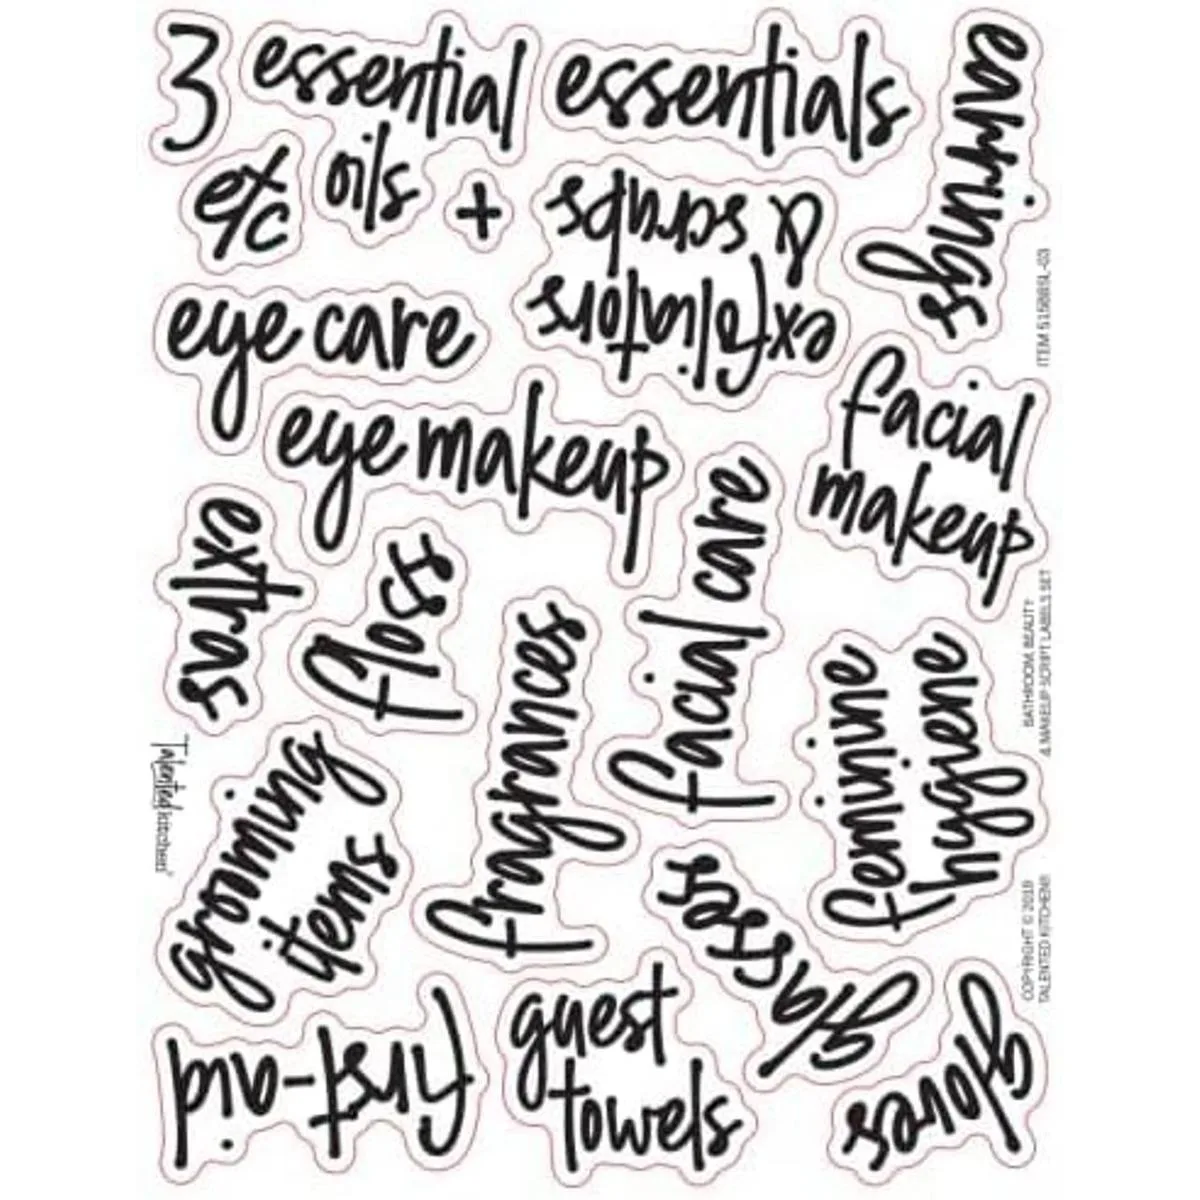 3
essential
oils
essentials
earrings
etc
+
exfoliators
& scrubs
ITEM 5158BSL-03
eye care
eye makeup
facial
makeup
extras
floss
fragrances
facial care
feminine
hygiene
BATHROOM BEAUTY
& MAKEUP SCRIPT LABELS SET
Talented Kitchen®
grooming
items
glasses
COPYRIGHT © 2018
TALENTED KITCHEN®
first-aid
guest
towels
gloves